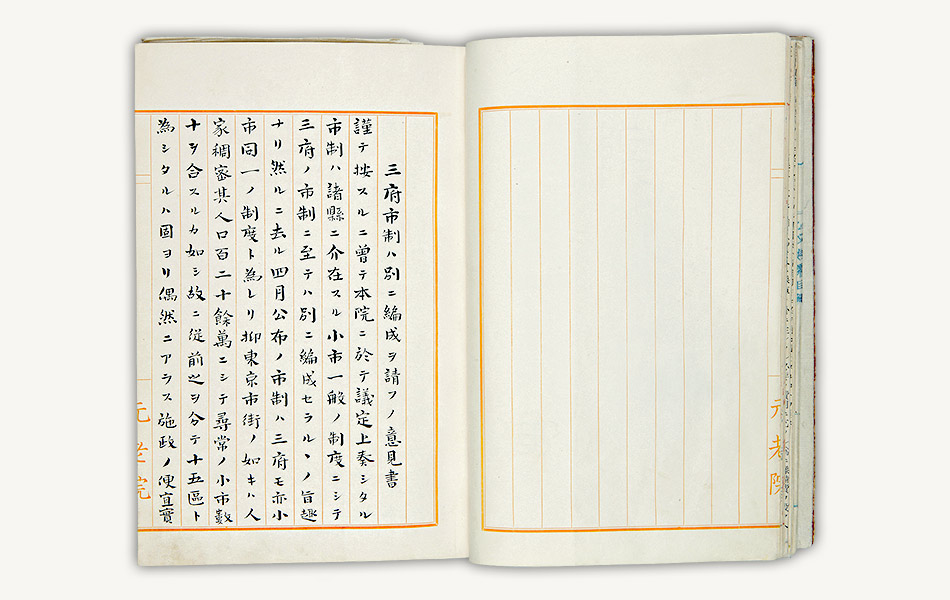 三府市制ハ別ニ編成ヲ請フノ意見書
謹テ按スルニ曽テ本院ニ於テ議定上奏シタル
市制ハ諸縣ニ介在スル小市一般ノ制度ニシテ
三府ノ市制ニ至テハ別ニ編成セラルヽノ旨趣
ナリ然ルニ去ル四月公布ノ市制ハ三府モ亦小
市同一ノ制度ト為レリ抑東京市街ノ如キハ人
家稠密其人口百二十餘萬ニシテ尋常ノ小市數
十ヲ合スルカ如シ故ニ従前之ヲ分テ十五區ト
為シタルハ固ヨリ偶然ニアラス施政ノ便宜實
元老院
元老院